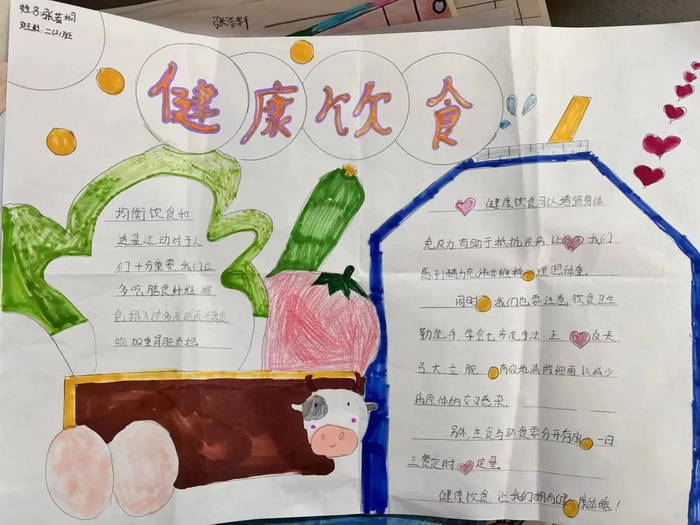 姓名:张若桐
班级:二(2)班
张浩轩
健康饮食
均衡饮食和
适量运动对于人
们十分重要,我们应
多吃膳食纤维,避
加重肾脏负担.
健康饮食可以增强身体
免疫力,有助于抵抗疾病,让我们
感到精力充沛并维持理想体重.
同时我们也要注意,饮食卫生
勤洗手,学会七步洗手法:正反夹
弓大立腕,有效地清除细菌以减少
病原体的交叉感染.
另外,生食与熟食要分开存放一日
三餐定时定量.
健康饮食,让我们拥有健康体魄!